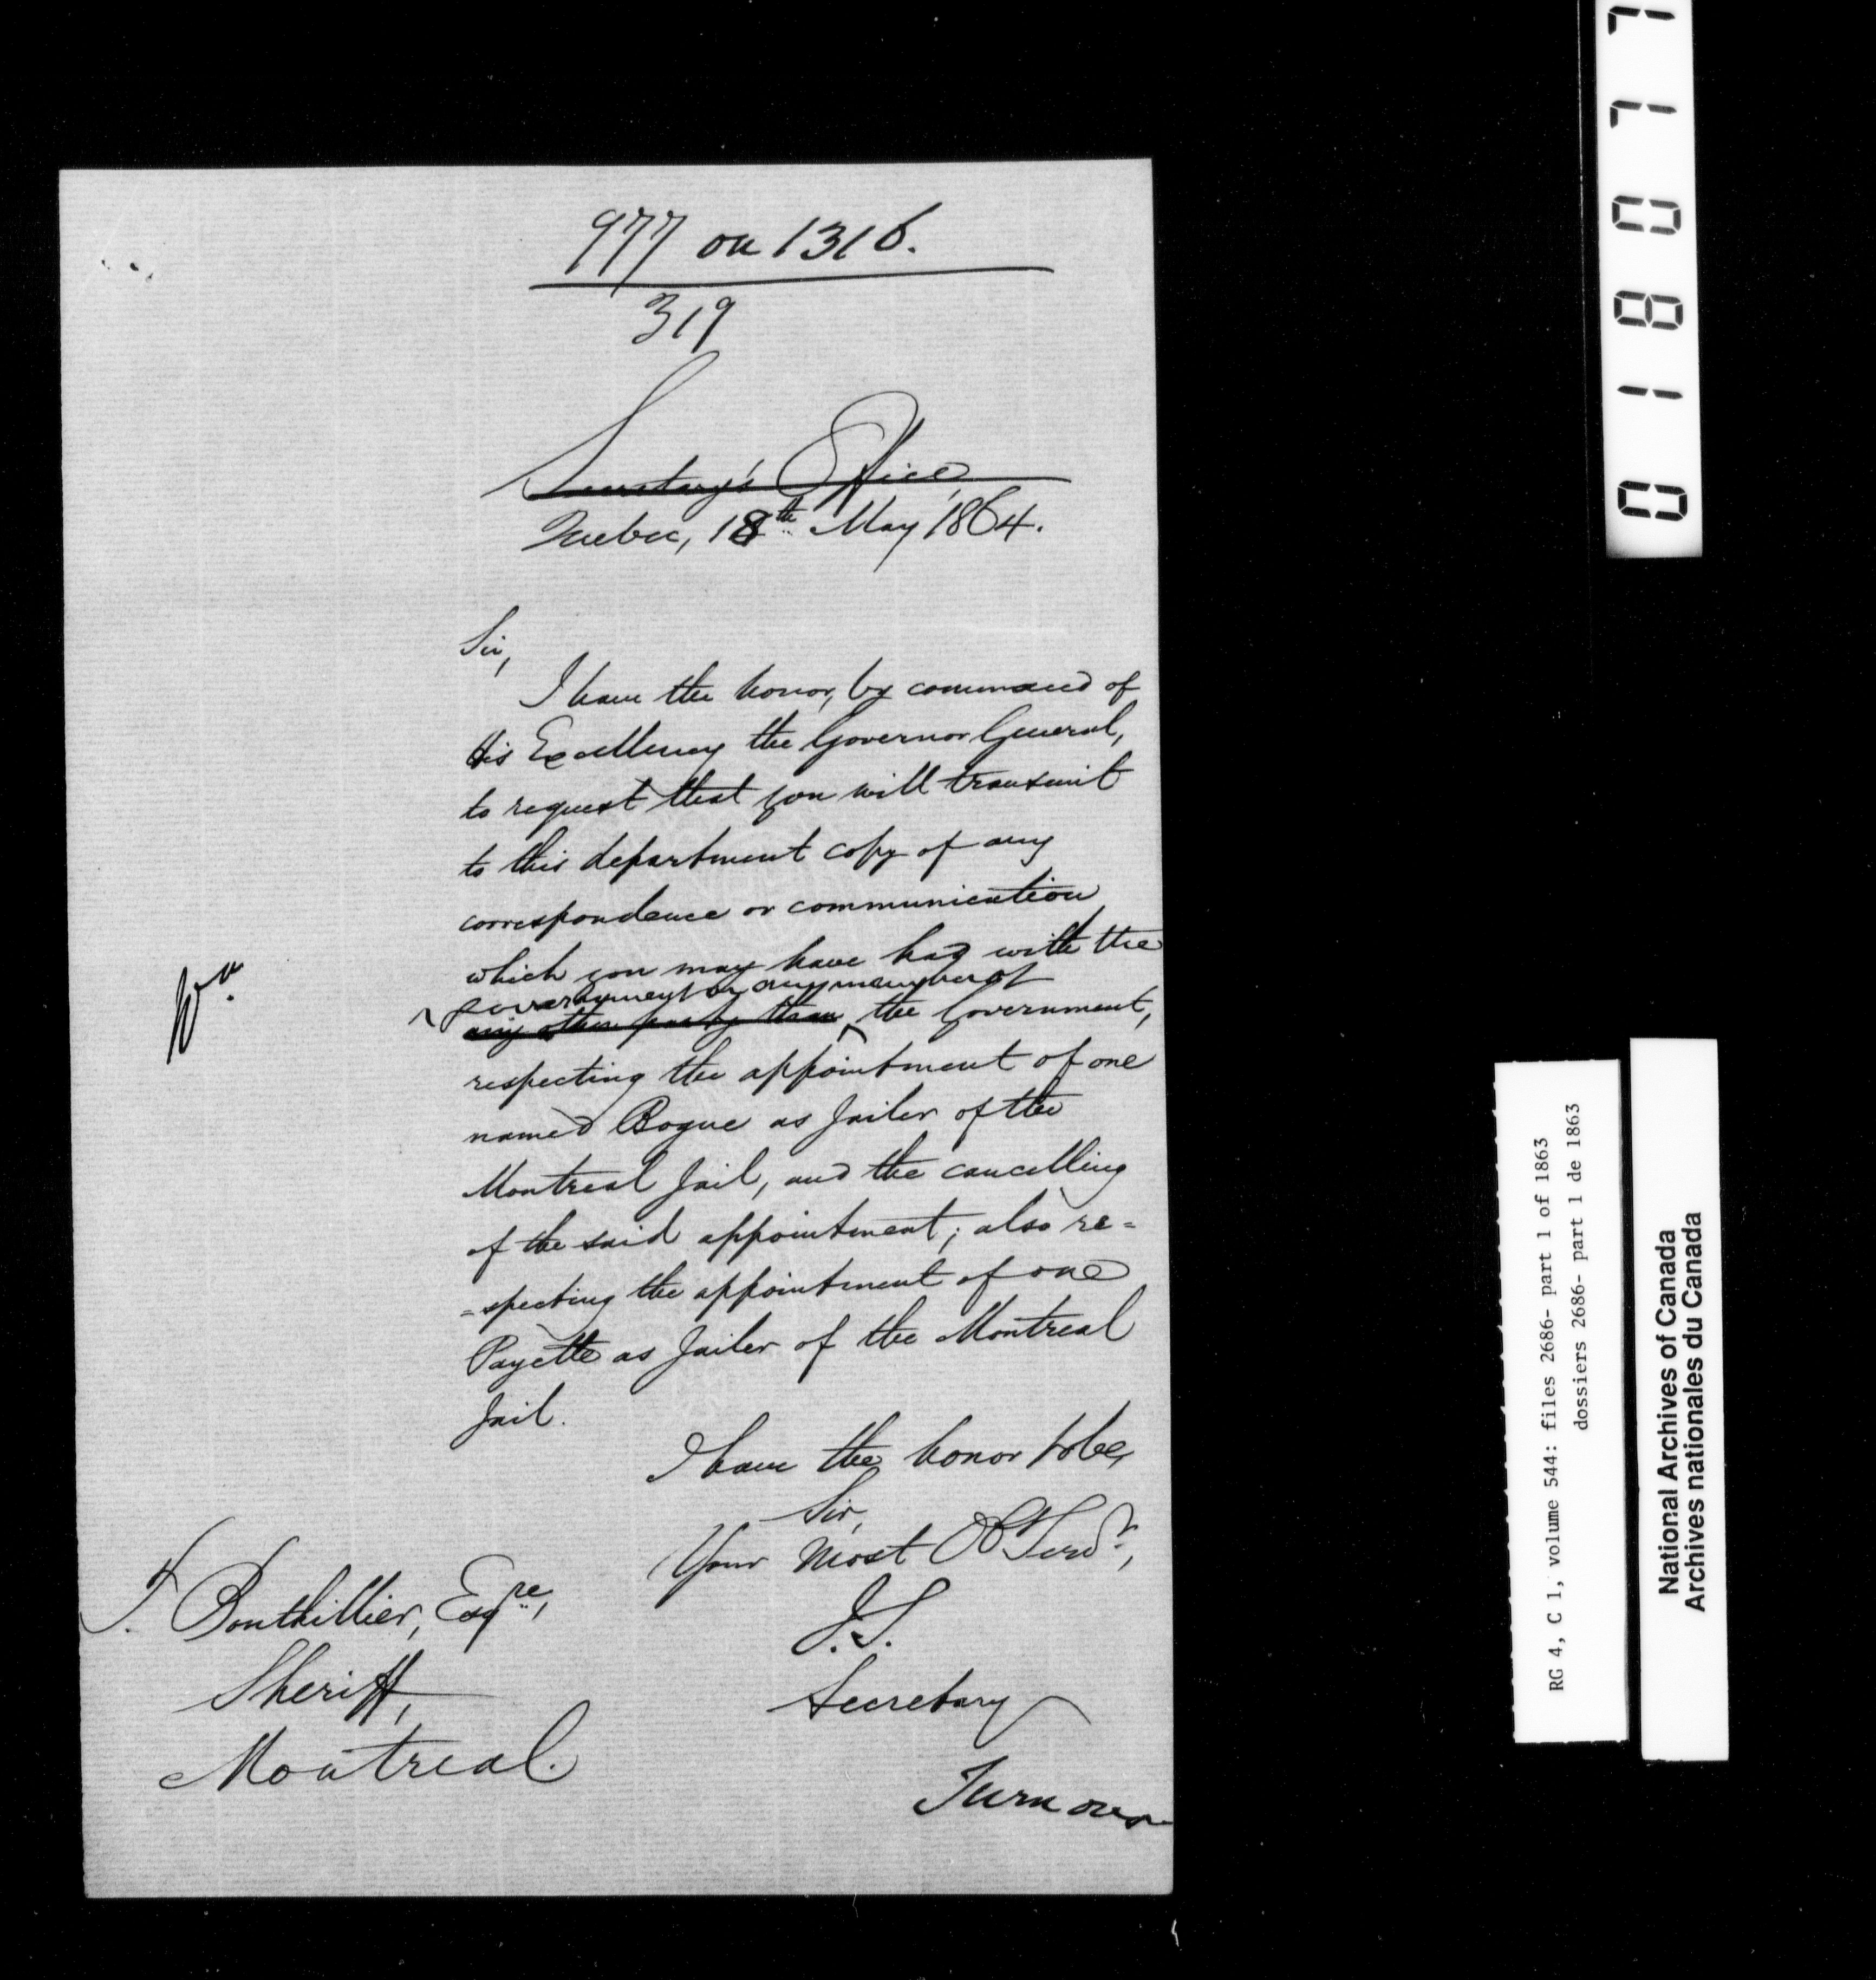 977 on 1316.
319
Secretary's Office
Quebec, 18th May 1864.
Sir,
I have the honor, by command of
His Excellency the Governor General,
to request that you will transmit
to this department copy of any
correspondence or communication
which you may have had with the
government or any member of
any other party than the Government,
respecting the appointment of one
named Bogue as Jailer of the
Montreal Jail, and the cancelling
of the said appointment; also re=
=specting the appointment of one
Payette as Jailer of the Montreal
Jail.
I have the honor to be,
Sir,
Your Most Ob Servt,
J.S.
Secretary
T. Bouthillier, Esqre,
Sheriff,
Montreal.
Turn over
018077
RG 4, C 1, volume 544: files 2686- part 1 of 1863
dossiers 2686- part 1 de 1863
National Archives of Canada
Archives nationales du Canada